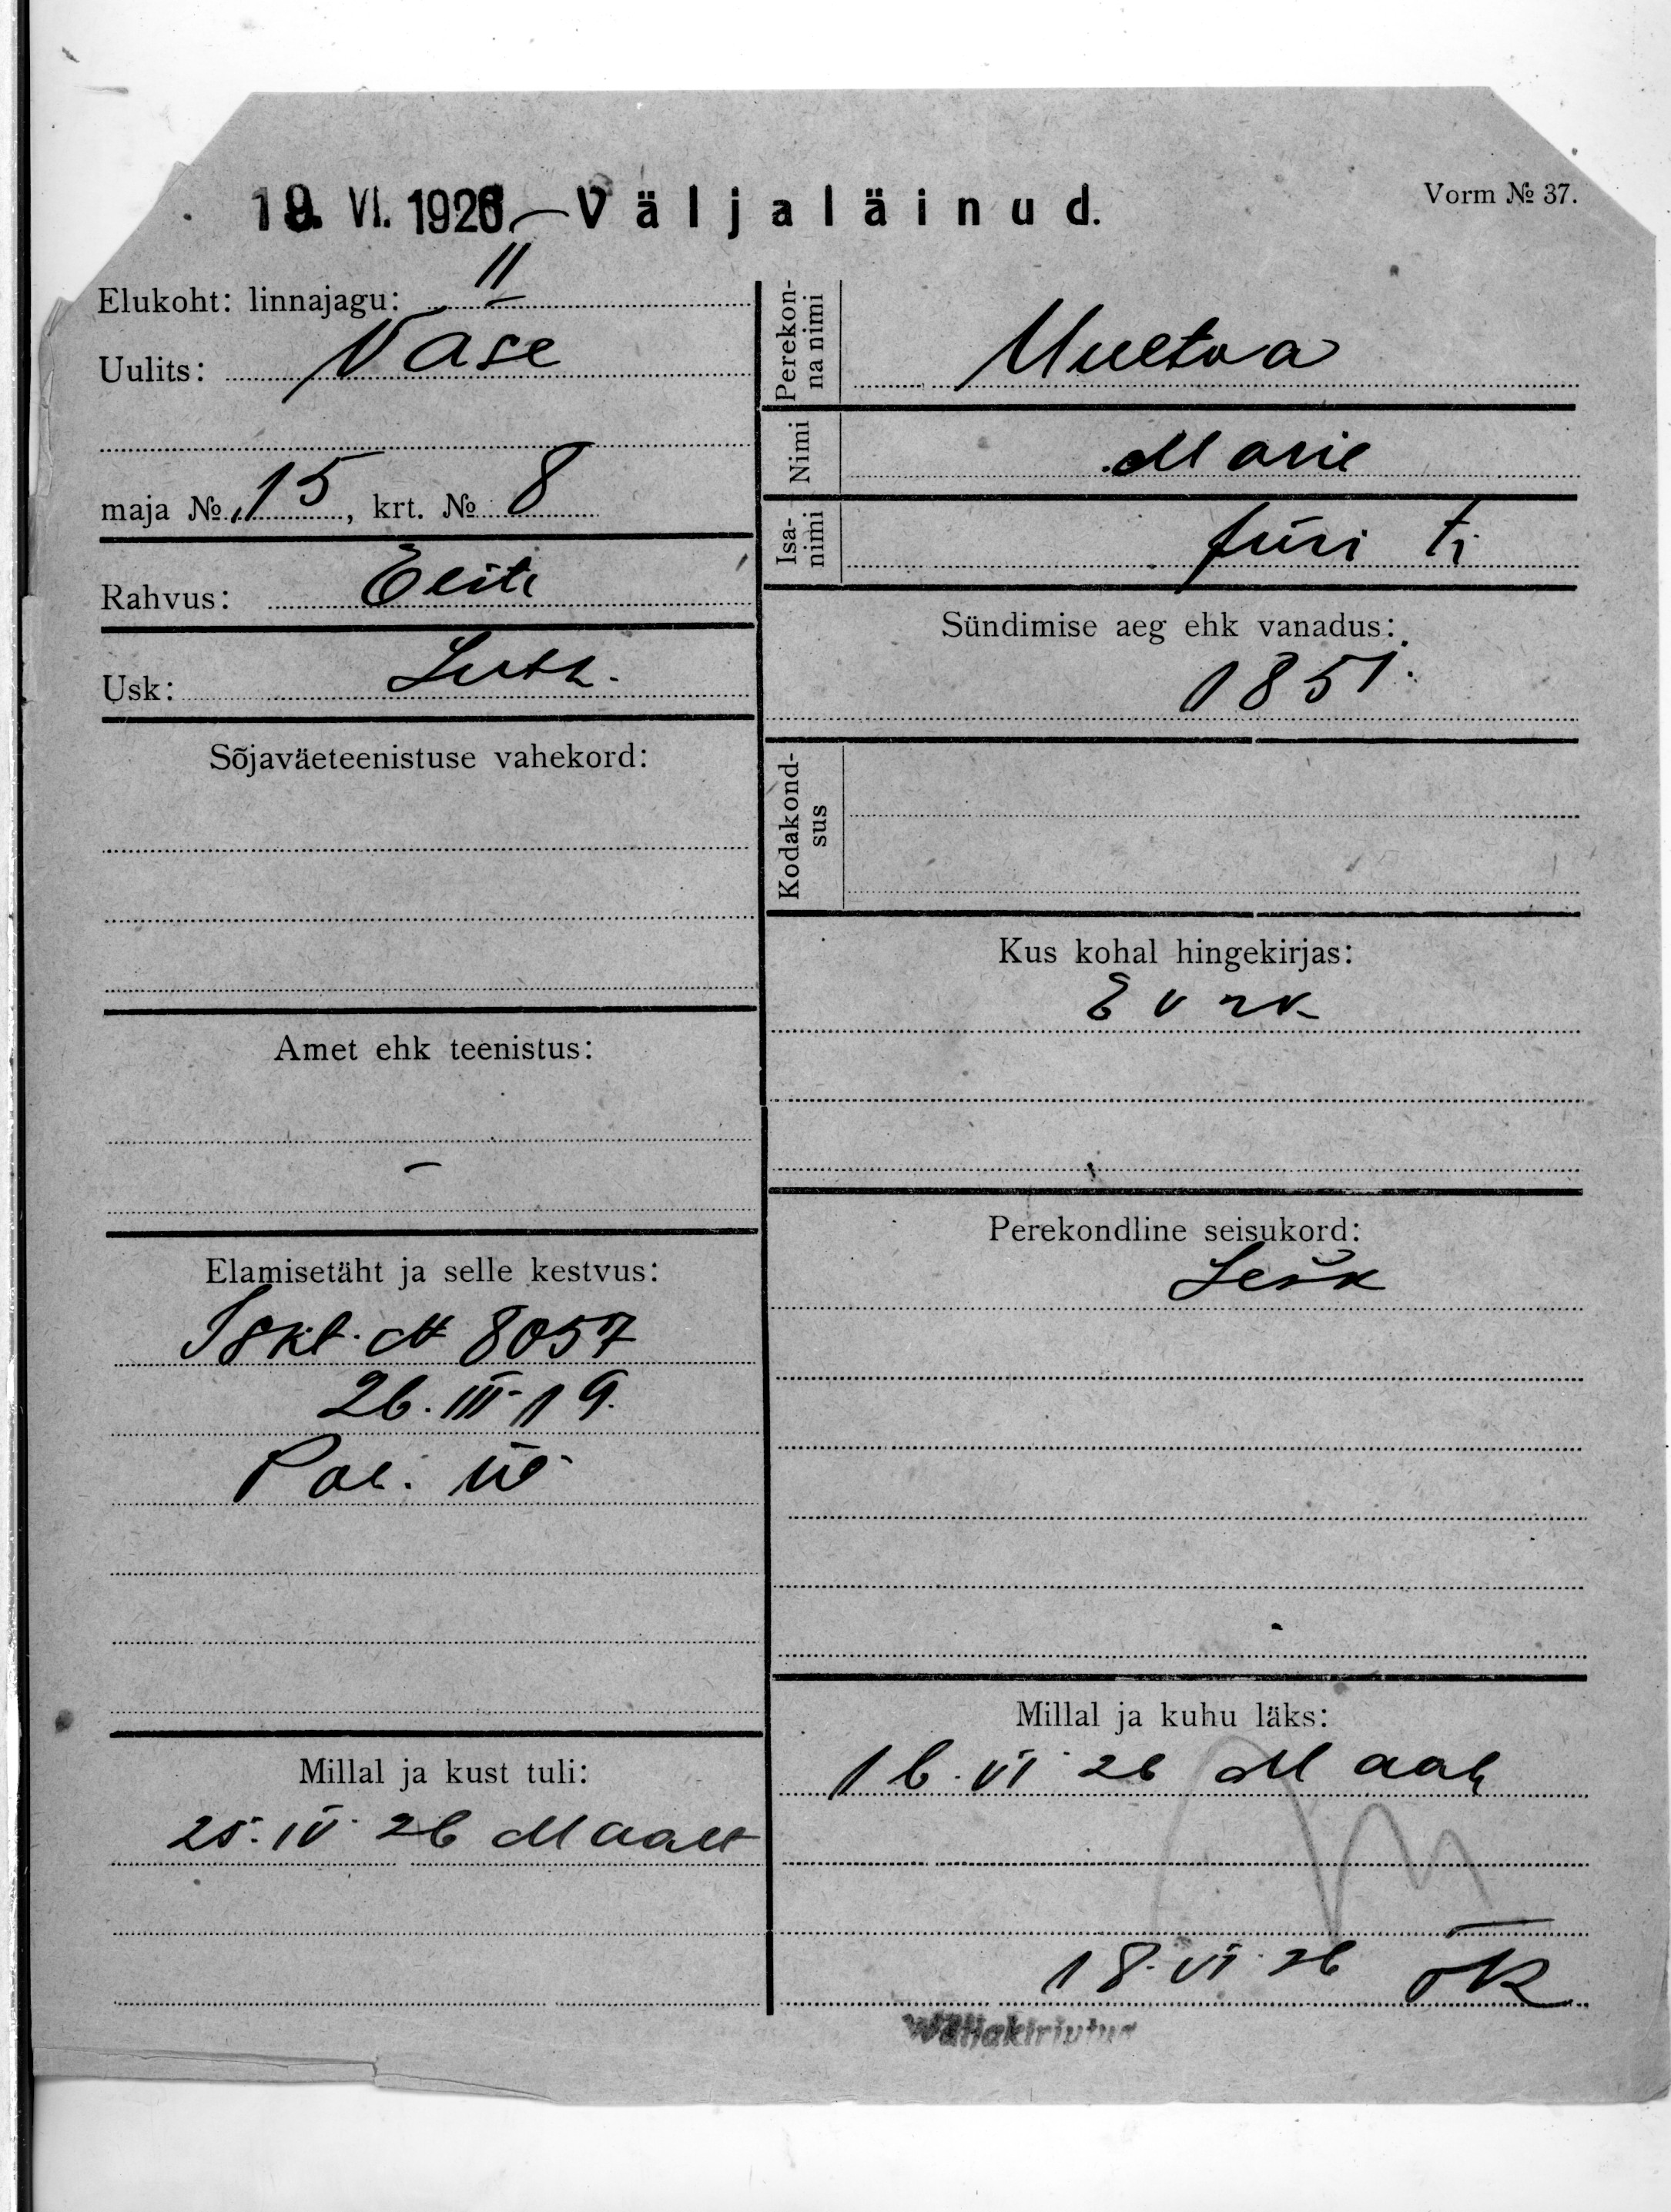 19. VI. 1926 Väljaläinud.
Vorm № 37.
Elukoht: linnajagu: II
Uulits: Vase
maja № 15, krt. № 8
Rahvus: Eesti
Usk: Luth.
Sõjaväeteenistuse vahekord:
Amet ehk teenistus:
–
Elamisetäht ja selle kestvus:
Iskt. № 8057
26. III 19.
Pol. üó
Millal ja kust tuli:
25. IV 26 Maalt
Perekonna nimi
Nimi Marie
Isanimi Jüri t.
Sündimise aeg ehk vanadus:
1851.
Kodakondsus
Kus kohal hingekirjas:
Perekondline seisukord:
Lesk
Millal ja kuhu läks:
16. VI 26 Maale
18. VI 26 OK
Väljakirjutud